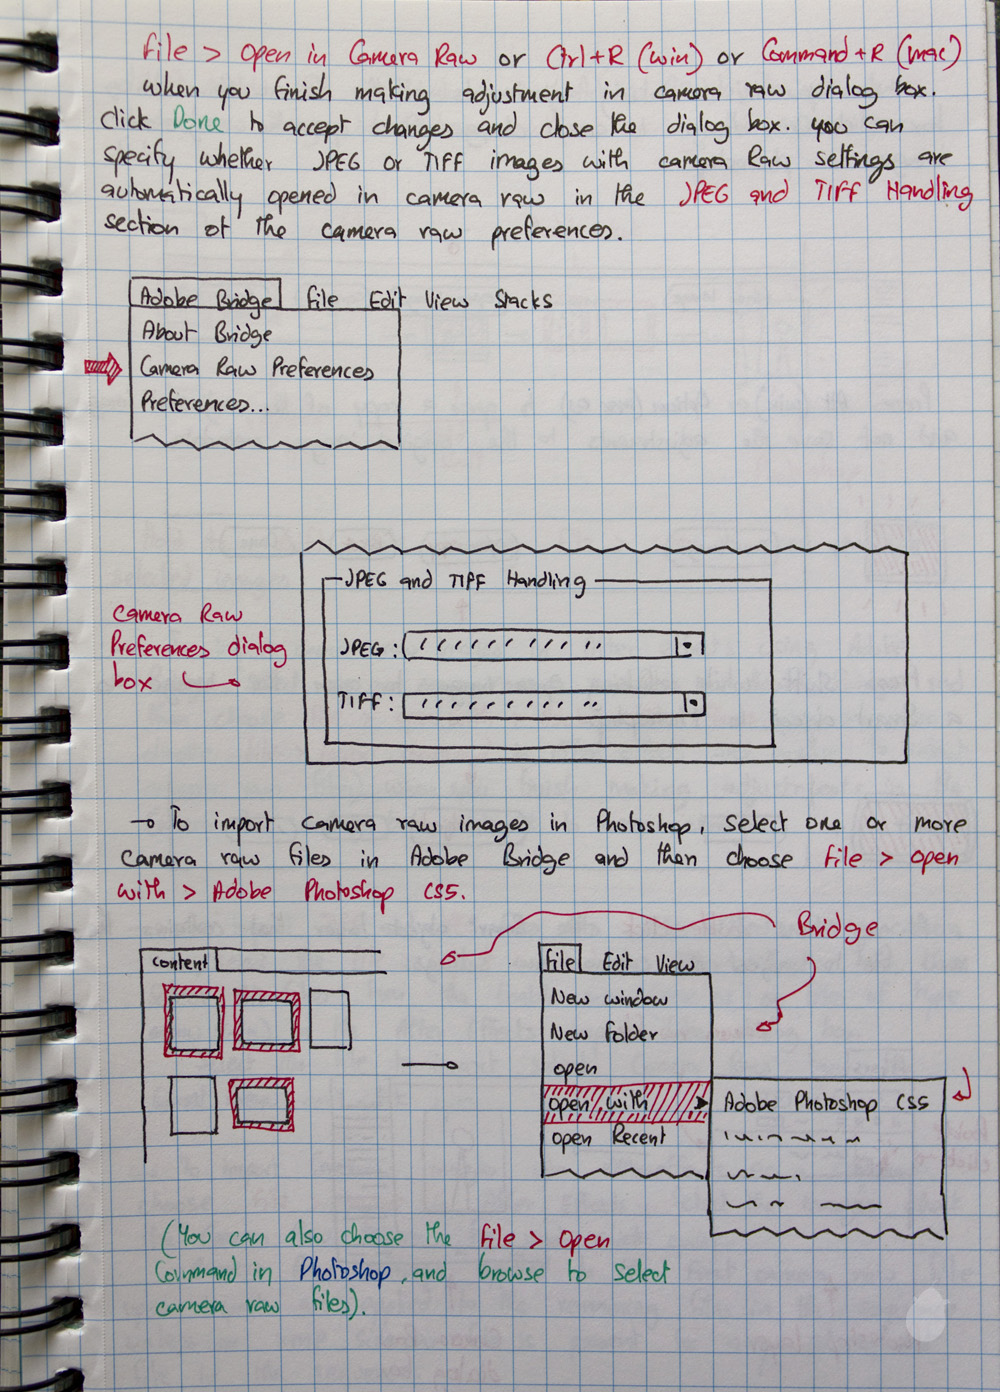 File > Open in Camera Raw or Ctrl+R (win) or Command+R (mac)
when you finish making adjustment in camera raw dialog box.
click Done to accept changes and close the dialog box. you can
specify whether JPEG or TIFF images with camera Raw settings are
automatically opened in camera raw in the JPEG and TIFF Handling
section of the camera raw preferences.
Adobe Bridge File Edit View Stacks
About Bridge
Camera Raw Preferences
Preferences...
JPEG and TIFF Handling
Camera Raw
Preferences dialog
box
JPEG:
TIFF:
To import camera raw images in Photoshop, select one or more
camera raw files in Adobe Bridge and then choose File > open
with > Adobe Photoshop CS5.
Bridge
content
File Edit View
New window
New Folder
open
open with
open Recent
Adobe Photoshop CS5
(You can also choose the File > Open
Command in Photoshop, and browse to select
camera raw files).